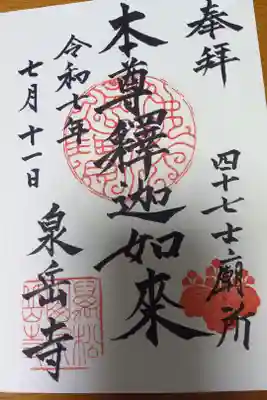 奉拝
四十七士廟所
本尊釋迦如來
令和七年
七月十一日
泉岳寺